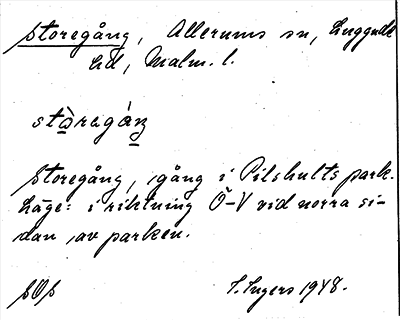 Storegång, Allerums sn, Luggude
hd, Malm. l.
stòregáŋ
Storegång, gång i Pilshults park.
Läge: i riktning Ö–V vid norra si-
dan av parken.
SOS I. Ingers 1948.